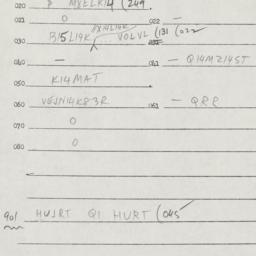 020 MXELKI4 (249
021 0 022 —
030 B15L19K VOLVL (131 (022
040 — 041 — Q14MZ14ST
050 K14MAT
060 VEJNI4K83R 061 — QRR
070 0
080 0
901 HUJRT Q1 HURT (045